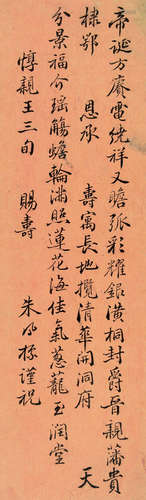 帝誕方賡電繞祥又瞻弧彩耀銀潢桐封爵晉親藩貴
棣鄂 恩承 壽寓長地攬清華開洞府 天
分景福介瑤觴蟾輪滿照蓮花海佳氣蔥蘢玉潤堂
惇親王三旬 賜壽 朱鳳標謹祝